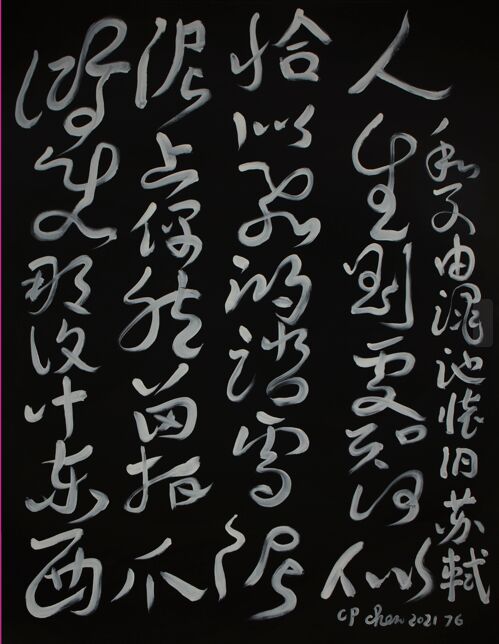 和子由渑池怀旧苏轼
人生到处知何似
恰似飞鸿踏雪泥
泥上偶然留指爪
鸿飞那复计东西
CP chen 2021 76